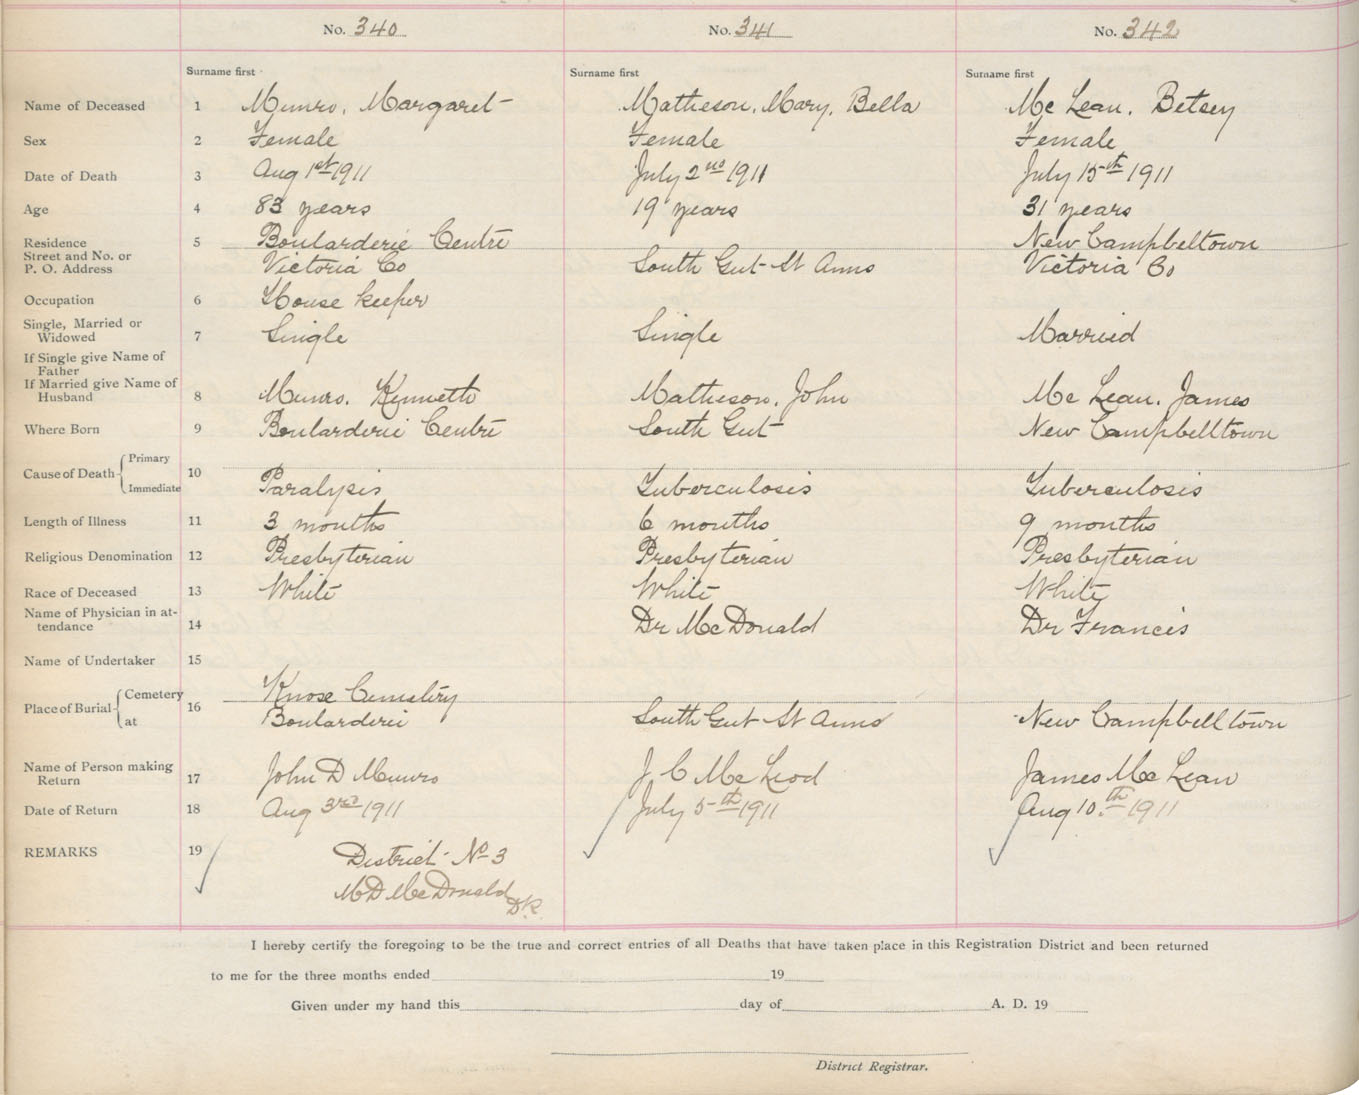 No. 340 No. 341 No. 342
Surname first Surname first Surname first
Name of Deceased 1 Munro, Margaret Matheson, Mary, Bella Mc Lean, Betsey
Sex 2 Female Female Female
Date of Death 3 Aug 1st 1911 July 2nd 1911 July 15th 1911
Age 4 83 years 19 years 31 years
Residence 5 Boularderie Centre New Campbeltown
Street and No. or
P. O. Address Victoria Co South Gut St Anns Victoria Co
Occupation 6 House keeper
Single, Married or
Widowed 7 Single Single Married
If Single give Name of
Father
If Married give Name of
Husband 8 Munro, Kenneth Matheson, John Mc Lean, James
Where Born 9 Boularderie Centre South Gut New Campbelltown
Cause of Death Primary 10
Immediate Paralysis Tuberculosis Tuberculosis
Length of Illness 11 3 months 6 months 9 months
Religious Denomination 12 Presbyterian Presbyterian Presbyterian
Race of Deceased 13 White White White
Name of Physician in at-
tendance 14 Dr McDonald Dr Francis
Name of Undertaker 15
Place of Burial Cemetery 16 Knose Cemetery
at Boularderie South Gut St Anns New Campbelltown
Name of Person making
Return 17 John D Munro J C Mc Leod James Mc Lean
Date of Return 18 Aug 3rd 1911 July 5th 1911 Aug 10th 1911
REMARKS 19 District No 3
M D McDonald
D.R.
I hereby certify the foregoing to be the true and correct entries of all Deaths that have taken place in this Registration District and been returned
to me for the three months ended 19
Given under my hand this day of A. D. 19
District Registrar.